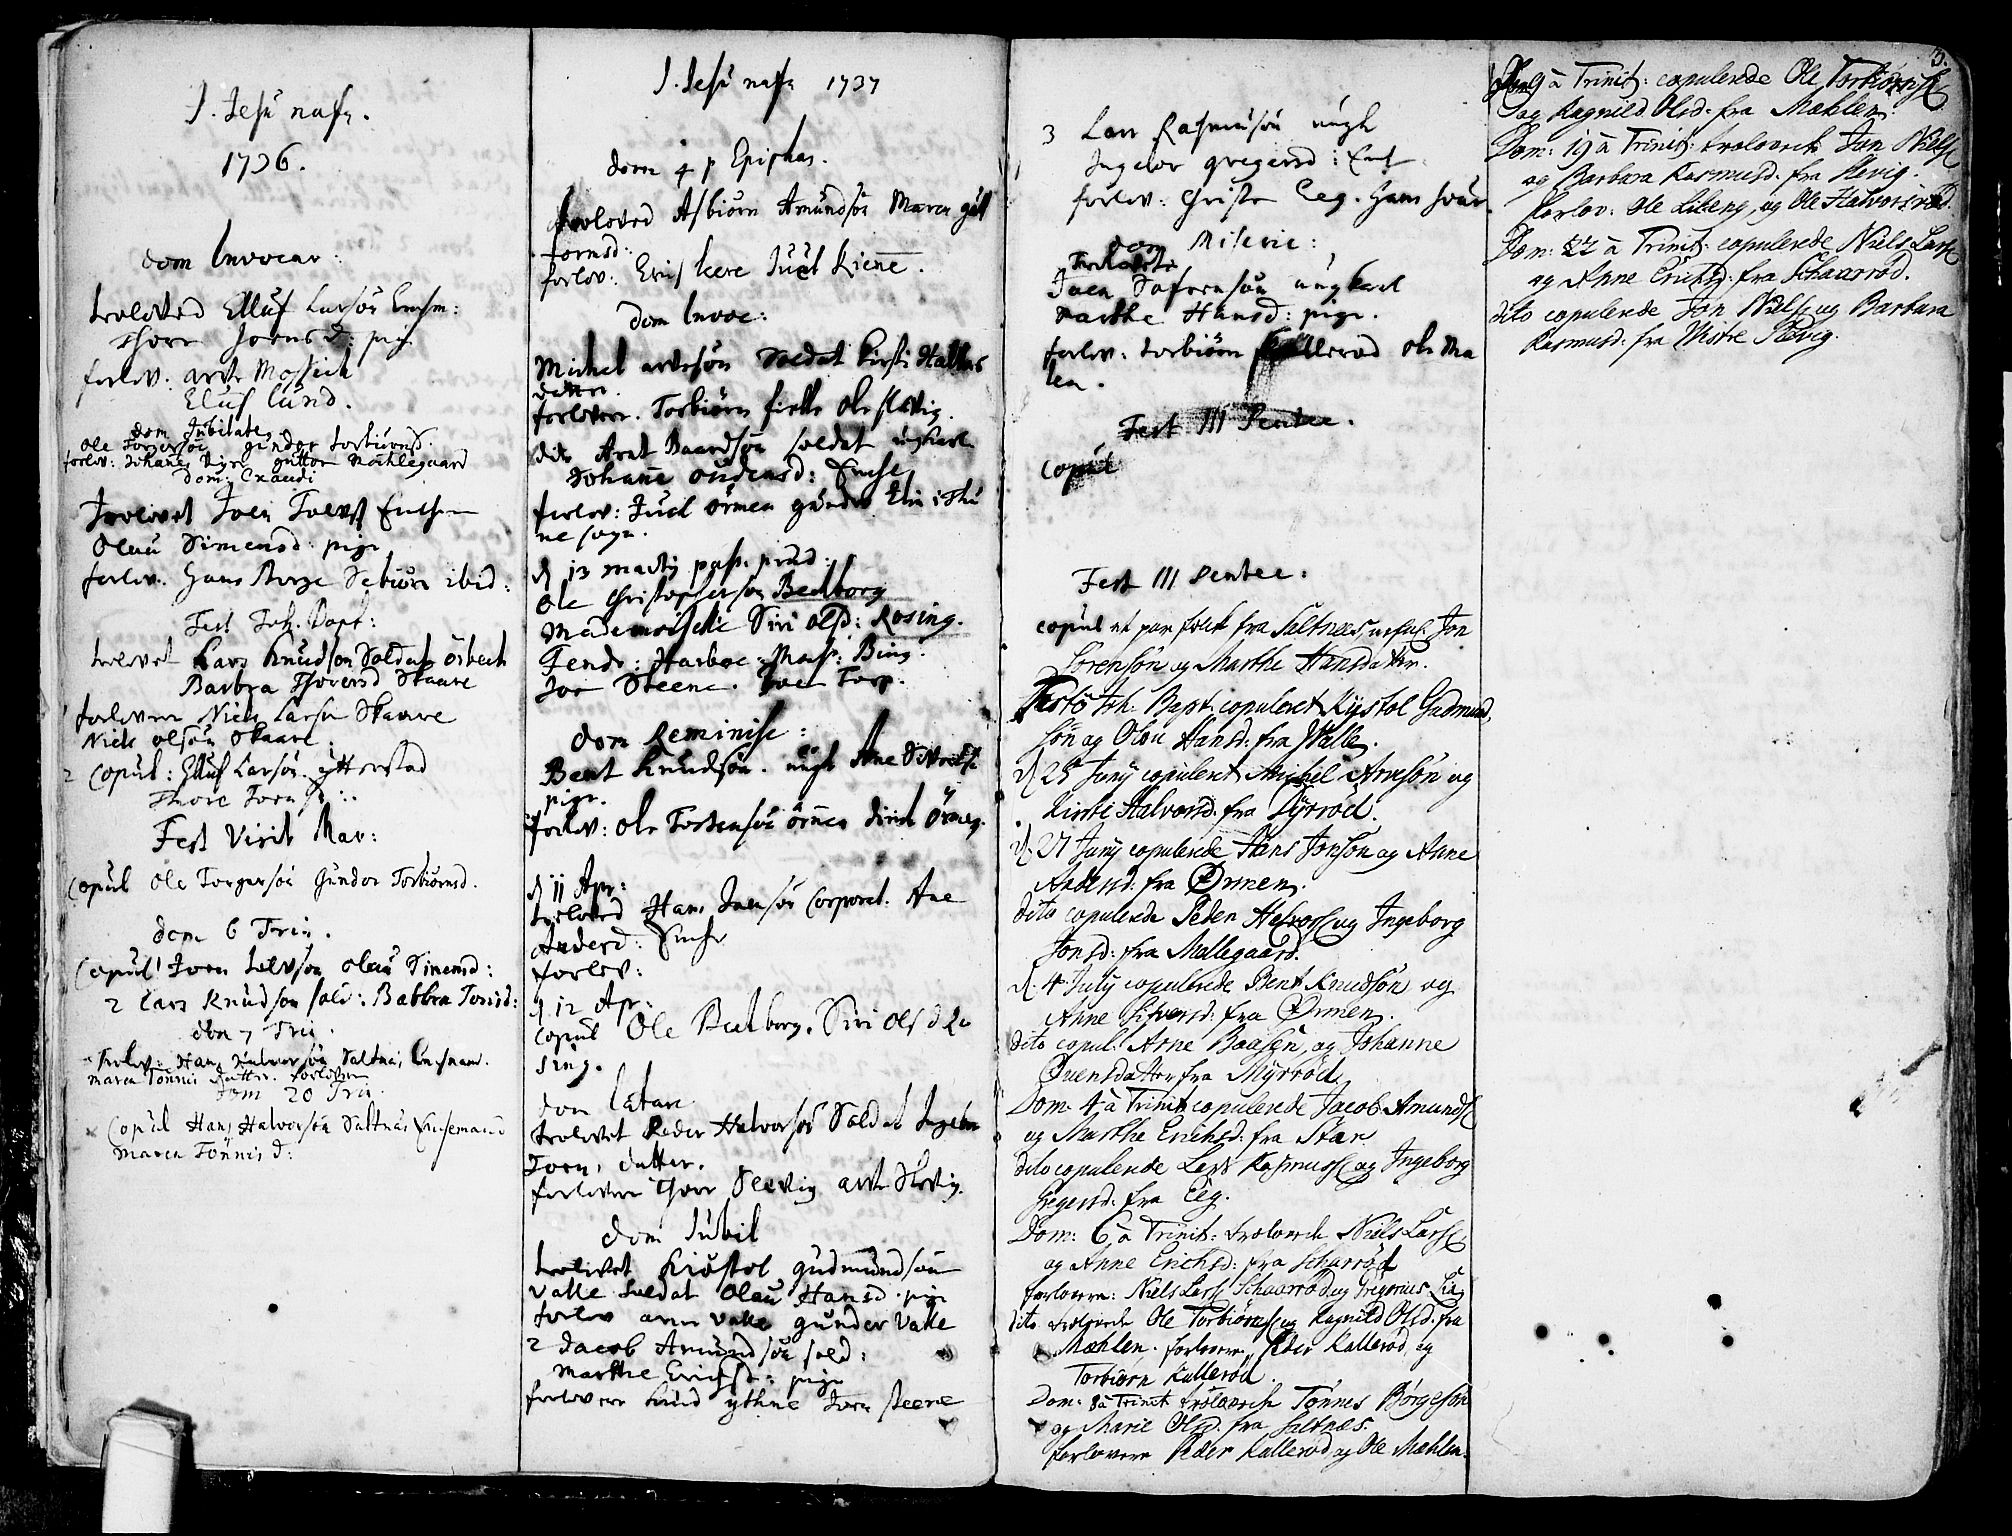 J. Jesu nafn.
1736.
dom Invocav:
troloved Elluf Larsøn Enchm:
Thore Joensd: pig
forlov: arve Mossich
Eluf Lund.
dom Jubilate
Ole Torgersøn gundor torbiørnsd.
forlov: Johanes guttor Mæhlegaard
Dom: Exaudi
trolovet Joen Enchm
Olau Simensd: pige
forlov: Hans Borge ibid:
Fest Joh. Bapt:
trolovet Lars Knudsøn Soldat
Barbra Thoresd Skaare
1 forlovere Niels Larsøn Skaare
Niels olsøn Skaare
2 Copul: Elluf Larsøn ytterstad
Thore Joensd:
Fest Visit Mar:
Copul Ole Torgersøn gundor Torbiørnsd.
dom 6 Trin.
Copul Joen Olau Simensd:
2 Lars Knudsøn sold: Babbra
dom 7 Trin.
Trolov: Hans Halvorsøn Saltnæs Enchemand.
maren Tønnis datter. forlover
dom 20 Trin.
Copul Hans Halvorsøn Saltnæs Enchemand
maren Tønnis d:
J. Jesu nafn 1737
dom 4 p Epiphan.
troloved Asbiørn Amundsøn Maren gut
tormsd:
forlov: Juel Kiene.
dom Invoc:
Michel arvesøn Soldat Kirsti Halvors
datter.
forlovere. Torbiørn ole slevig.
dito Arnt Baardsøn soldat ungkarl
Johane oudensd: Enche
forlov: Juel ørmen gunder i Thu
ne sogn.
d 13 martij
Ole Christophersøn Bedborg
Mademoiselle Siri olsd: Rosing.
Joe Steene.
dom Reminisc:
Bent Knudsøn. ungk Ane
pige.
forlov: ole Torstensøn ørmen ørmen.
d 11 Apr:
troloved Hans Joensøn Corporal. Ane
Andersd: Enche
forlov:
d 12 Apr:
Copul Ole Bedborg. Siri olsd Ro
sing.
dom Lætare
trolovet Peder Halvorsøn Soldat Ingebor
Joens datter.
forlovere Thor Slevig arve Slevig.
dom Jubil
trolovet Kiøstol gudmundsøn
Valle Soldat Olau Hansd: pige
forlov arne Valle gunder Valle
2 Jacob Amundsøn sold:
Marthe Erichsd: pige
forlover Knud ythne Joen steene
3 Lars Rasmusøn ungk
Ingebor gregersd: Ench
forlov: Christen Eeg. Hans
dom Miseric:
Trolovet
Joen Sørensøn ungkarl
Marthe Hansd: pige.
forlov: torbiørn ole Mæ
len.
Fest III Pentec.
Copul
Fest III Pentec:
copul et par folck fra Saltnæs, Jon
Sørensøn og Marthe Hansdatter.
Festo Joh: Bapt: copuleret Kystol Gudmund
søn og Olou Hansd: fra Walle.
d 25 Junij copuleret Michel Arvesøn og
Kirsti Halvorsd: fra Fyrrød.
d. 27 Junij copulerede Hans Jonsøn og Anne
Andersd: fra Ørmen.
dito copulerede Peder Halvors: og Ingeborg
Jonsd: fra Mællegaard.
d. 4 July copulerede Bent Knudsøn og
Anne Sifversd: fra Ørmen.
dito copul: Arne Baasen, og Johanne
Øvensdatter fra Myrrød.
Dom: 4 à Trinit: copulerede Jacob Amunds:
og Marthe Erichsd: fra Stær.
dito copulerede Lars Rasmuss: og Ingeborg
Gregersd: fra Eeg.
Dom: 6 à Trinit: trolovede Niels Lars:
og Anne Erichsd: fra Scharrød
forlovere: Niels Lars: Schaarrød og Gregorius
dito trolovede Ole Torbiørns: og Ragnild Olsd: fra
Mæhlen. forlovere, Peder Kallerød, og
Torbiørn Kallerød.
Dom: 8 à Trinit: trolovede Tønnes Børgesøn
og Marie Olsd: fra Saltnæs.
forlovere Peder Kallerød og Ole Mæhlen.
3.
Dom: 9 à Trinit: copulerede Ole Torbiørns:
og Ragnild Olsd: fra Mæhlen.
Dom: 19 à Trinit: trolovede Jon Niels:
og Barbara Rasmusd: fra Slevig.
forlov: Ole Libeng, og Ole Halvorsrød.
Dom: 22 à Trinit: copulerede Niels Lars:
og Anne Erichsd: fra Schaarrød.
dito copulerede Jon Niels: og Barbara
Rasmusd: fra Westre Slevig.